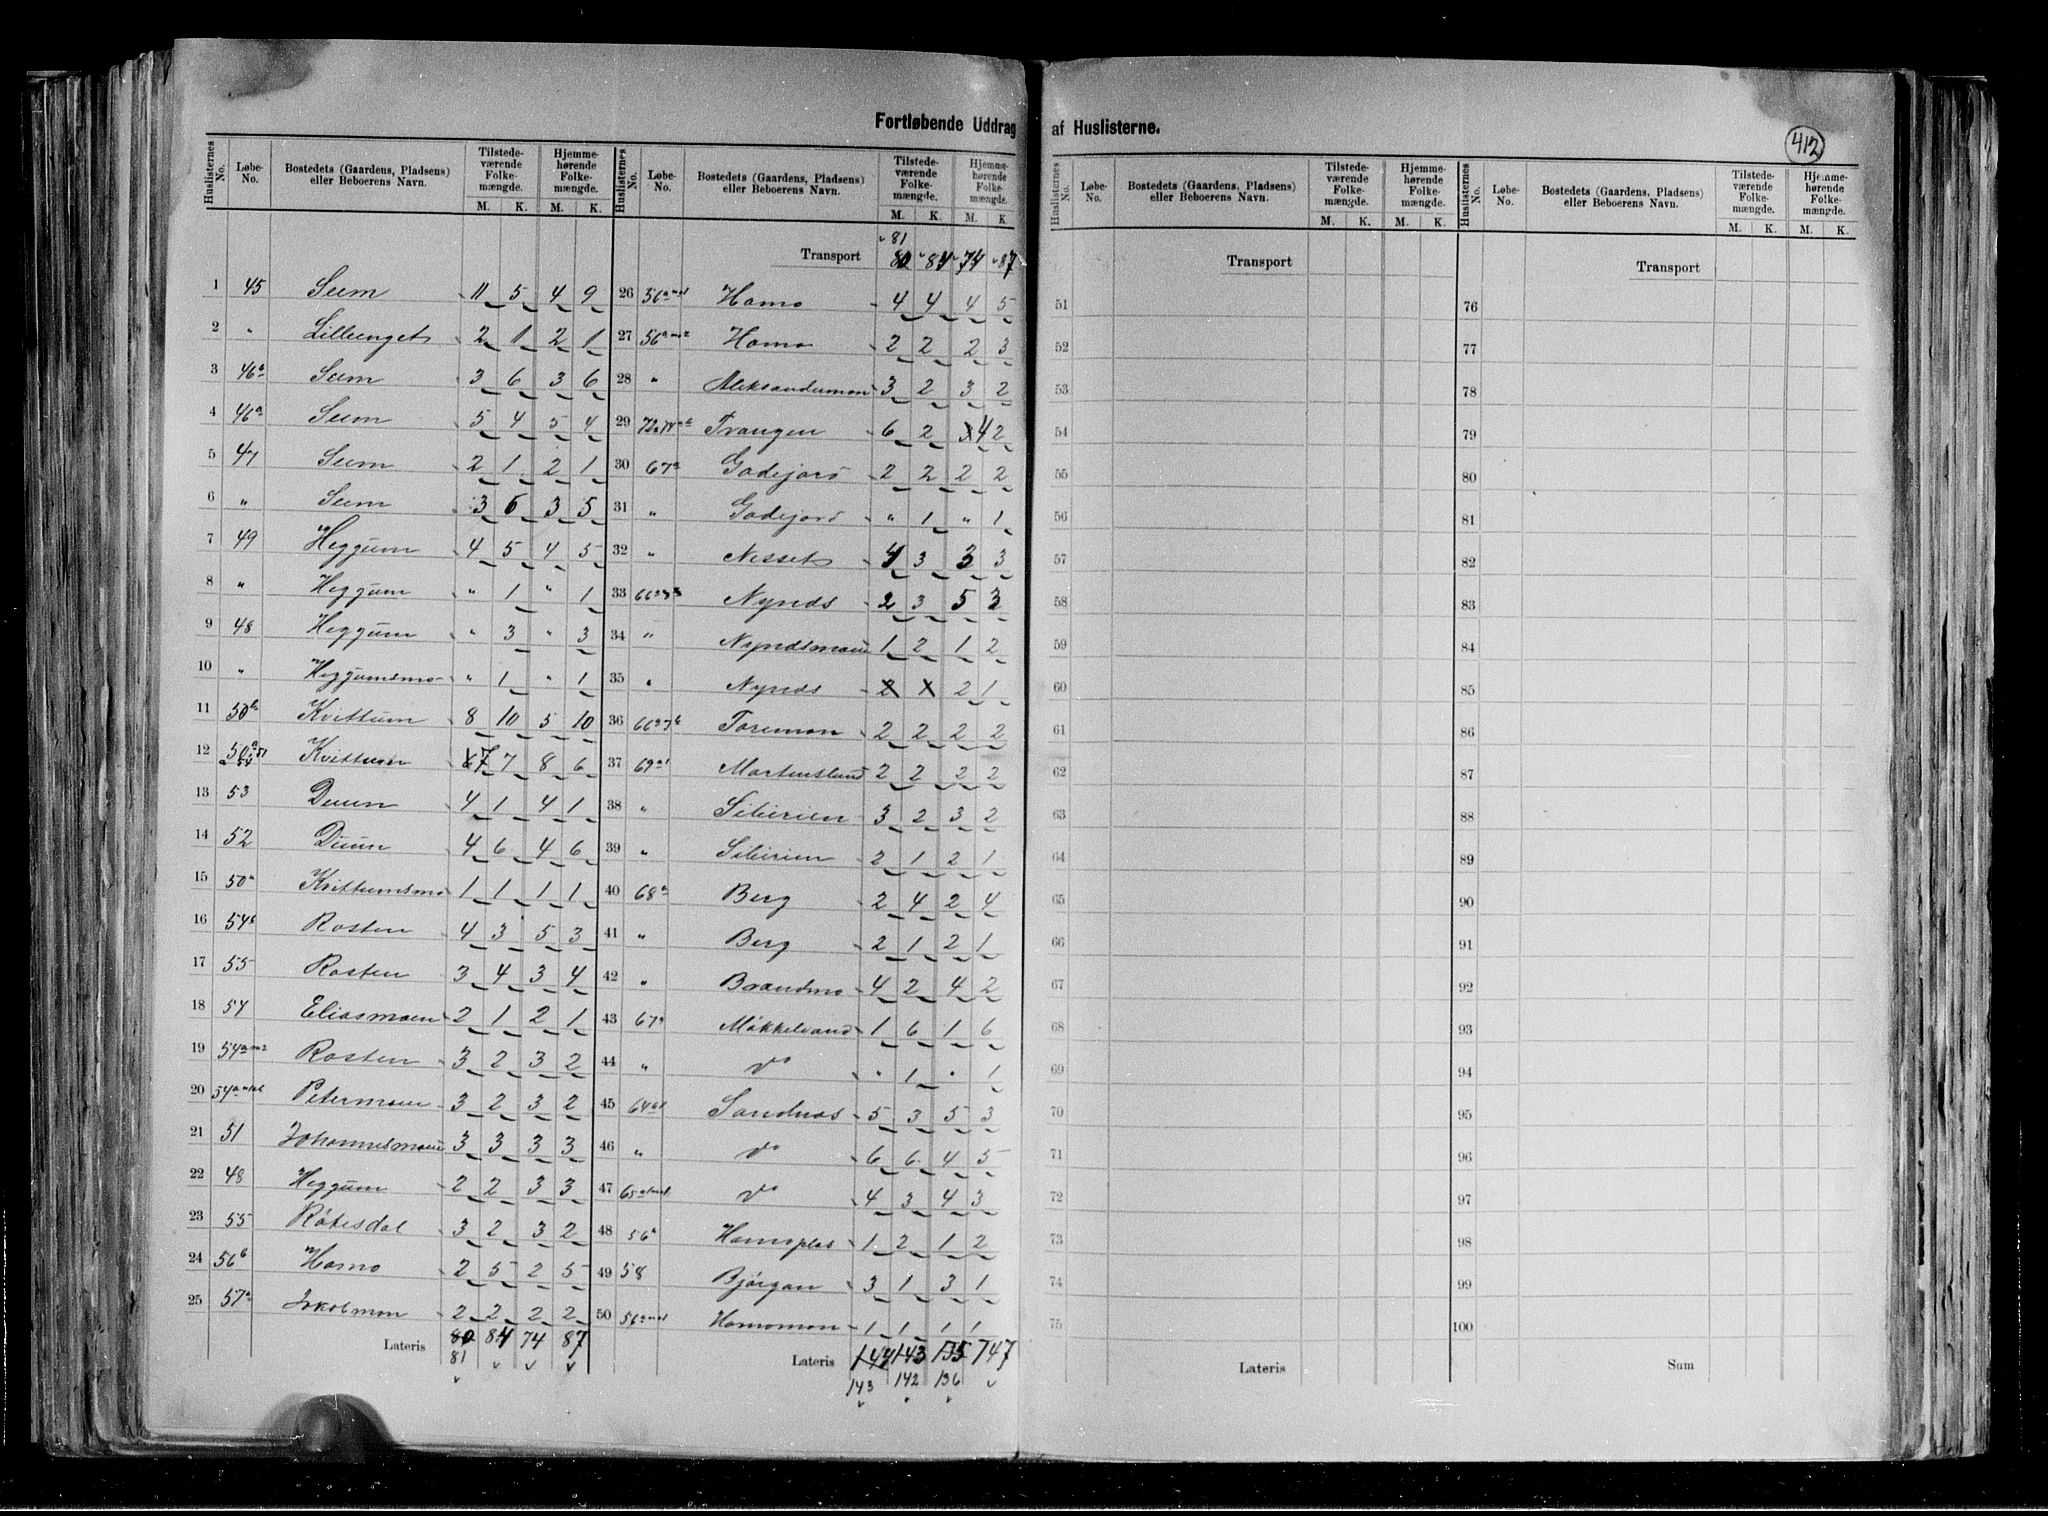 Fortløbende Uddrag af Huslisterne.
412
Huslisternes No. Løbe-No. Bostedets (Gaardens, Pladsens) eller Beboerens Navn. Tilstedeværende Folkemængde. M. K. Hjemmehørende Folkemængde. M. K.
1 45 Seem 11 5 4 9
2 " Lillenget 2 1 2 1
3 46 Seem 3 6 3 6
4 46a Seem 5 4 5 4
5 47 Seem 2 1 2 1
6 " Seem 3 6 3 5
7 49 Heggum 4 5 4 5
8 " Heggum " 1 " 1
9 48 Heggum " 3 " 3
10 " Heggumsmo " 1 " 1
11 50b Kvittum 8 10 5 10
12 50a 51 Kvittum 7 7 8 6
13 53 Duun 4 1 4 1
14 52 Duun 4 6 4 6
15 50a Kvittumsmo 1 1 1 1
16 54b Rosten 4 3 5 3
17 55 Rosten 3 4 3 4
18 54 Eliasmoen 2 1 2 1
19 54a Rosten 3 2 3 2
20 54a Petermoen 3 2 3 2
21 51 Johannesmoen 3 3 3 3
22 48 Heggum 2 2 3 3
23 55 Røtesdal 3 2 3 2
24 56b Homo 2 5 2 5
25 57a Jakobmon 2 2 2 2
Lateris 80 84 74 87
81
Huslisternes No. Løbe-No. Bostedets (Gaardens, Pladsens) eller Beboerens Navn. Tilstedeværende Folkemængde. M. K. Hjemmehørende Folkemængde. M. K.
81
Transport 80 84 74 87
26 56a Homo 4 4 4 5
27 56a Homo 2 2 2 3
28 " Aleksandermon 3 2 3 2
29 Trangen 6 2 4 2
30 67a Godejord 2 2 2 2
31 " Godejord " 1 " 1
32 " Nesset 4 3 3 3
33 Nyneds 2 3 5 3
34 " Nynedsmoen 1 2 1 2
35 " Nyneds 2 X 2 1
36 Toremon 2 2 2 2
37 69a1 Mortensland 2 2 2 2
38 " Siberien 3 2 3 2
39 " Siberien 2 1 2 1
40 68a Berg 2 4 2 4
41 " Berg 2 1 2 1
42 " Brandmo 4 2 4 2
43 67a Møkkelvand 1 6 1 6
44 " do " 1 " 1
45 64a1 Sandnæs 5 3 5 3
46 " do 6 6 4 5
47 65a do 4 3 4 3
48 56a Homoplas 1 2 1 2
49 58 Bjørgan 3 1 3 1
50 56a Homomon 1 1 1 1
Lateris 144 143 135 147
143 142 136
Huslisternes No. Løbe-No. Bostedets (Gaardens, Pladsens) eller Beboerens Navn. Tilstedeværende Folkemængde. M. K. Hjemmehørende Folkemængde. M. K.
Transport
51
52
53
54
55
56
57
58
59
60
61
62
63
64
65
66
67
68
69
70
71
72
73
74
75
Lateris
Huslisternes No. Løbe-No. Bostedets (Gaardens, Pladsens) eller Beboerens Navn. Tilstedeværende Folkemængde. M. K. Hjemmehørende Folkemængde. M. K.
Transport
76
77
78
79
80
81
82
83
84
85
86
87
88
89
90
91
92
93
94
95
96
97
98
99
100
Sum